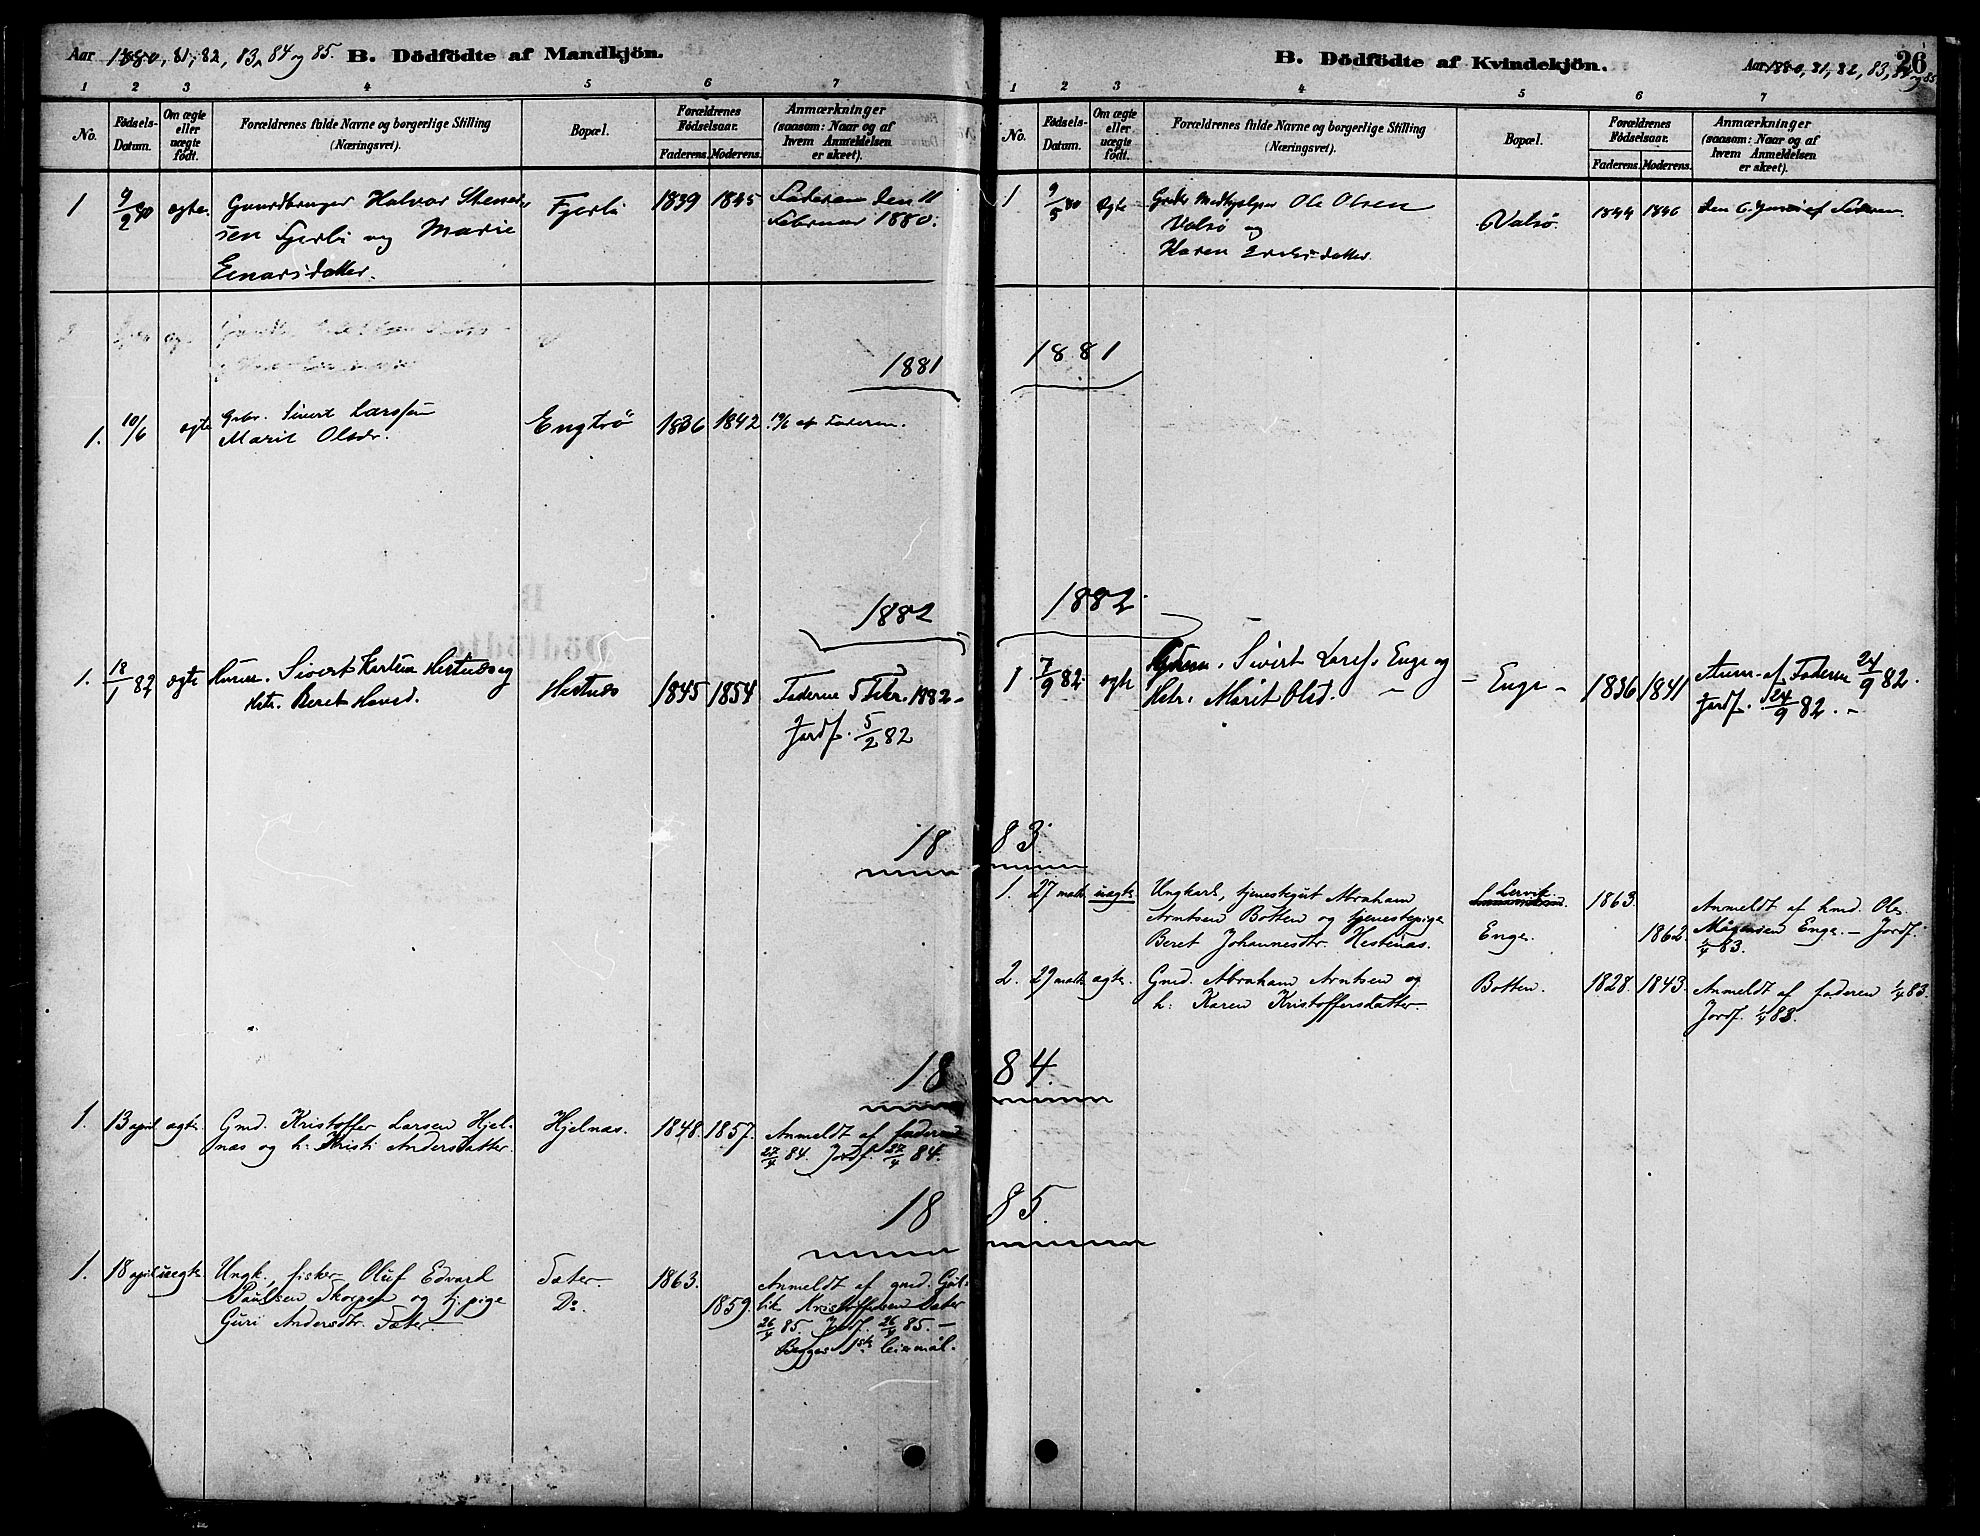 Aar 1880, 81, 82, 83, 84 og 85. B. Dödfödte af Mandkjön.
1 2 3 4 5 6 7
No. Fødsels-Datum. Om ægte eller uægte født. Forældrenes fulde Navne og borgerlige Stilling (Næringsvei). Bopæl. Forældrenes Fødselsaar. Faderens. Moderens. Anmærkninger (saasom: Naar og af hvem Anmeldelsen er skeet).
1 9/2 80 ægte Gaardbruger Halvor Stener- Fjerli 1839 1845 Faderen den 11
sen Fjerli og Marie Februar 1880.
Einarsdatter.
1881
1. 10/6 ægte Gbr. Sivert Larssen Engtrö 1836 1842 19/6 af Faderen.
Marit Olsdr.
1882
1. 18/1 82 ægte Sivert Karlsen Hestnes og Hestnes 1845 1854 Faderen 5 Febr. 1882 -
Hstr. Beret Hansd. Jordf. 5/2 82
18
18
1. 13 april ægte Gmd. Kristoffer Larsen Hjel- Hjelnæs. 1848. 1857. Anmeldt af faderen
næs og h. Kristi Andersdatter. 27/4 84. Jordf. 27/4 84.
18
1. 18 april uægte Ungk., fisker Oluf Edvard Sæter. 1863. Anmeldt af gmd. Gul-
Paulsen Skorpen og tj. pige Do. 1859. lik Kristoffersen Sæter
Guri Andersdtr. Sæter. 26/4 85. Jordf. 26/4 85. -
Begges 1ste leiermål.
B. Dödfödte af Kvindekjön. Aar 1880, 81, 82, 83, 84 og 85 26
1 2 3 4 5 6 7
No. Fødsels-Datum. Om ægte eller uægte født. Forældrenes fulde Navne og borgerlige Stilling (Næringsvei). Bopæl. Forældrenes Fødselsaar. Faderens. Moderens. Anmærkninger (saasom: Naar og af hvem Anmeldelsen er skeet).
1 9/5 80 Ægte Medhjelper Ole Olsen Valsö. 1844 1846 Den 6 Juni af Faderen
Valsö og
Karen Eriksdatter.
1881
1882
1 7/9 82. ægte Sivert Larss. Enge og - Enge - 1836 1841 Anm. af Faderen 24/9 82.
Hstr. Marit Olsd. - Jordf. 24/9 82. -
83.
1. 27 marts uægte Ungkarl, tjenestegut Abraham Lervik. 1863. Anmeldt af kmd. Ole
Arntsen Botten og tjenestepige Enge. 1862. Mågensen Enge. - Jordf.
Beret Johannesdtr. Hestenæs. 1/4 83.
2. 29 marts ægte. Gmd. Abraham Arntsen og Botten. 1828. 1843. Anmeldt af faderen 1/4 83.
h. Karen Kristoffersdatter. Jordf. 1/4 83.
84.
85.